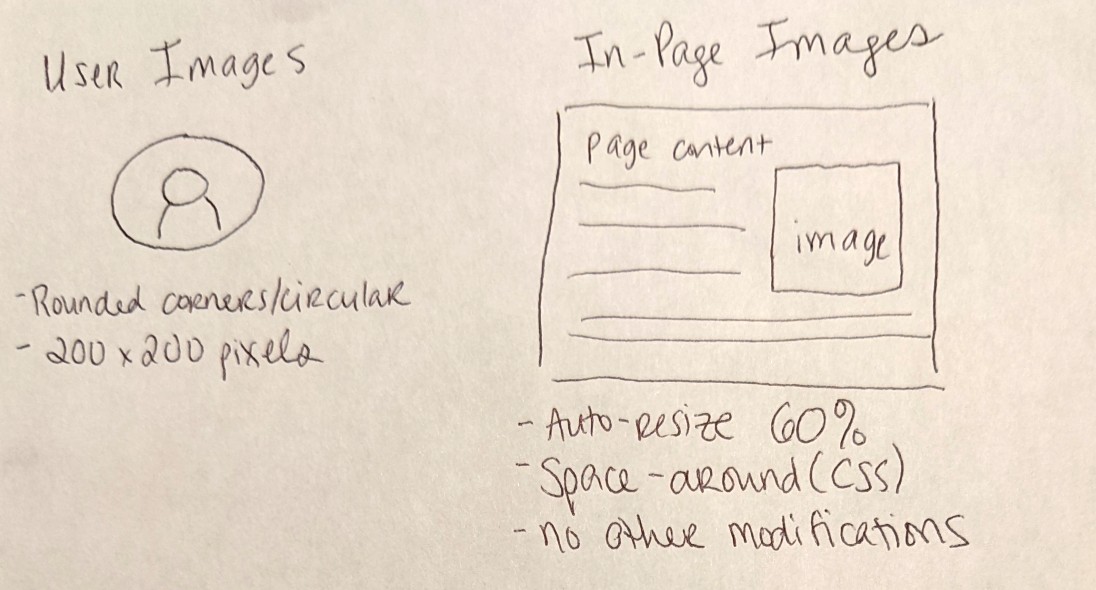 User Images
- Rounded corners/circular
- 200 x 200 pixels
In-Page Images
page content
image
- Auto-resize 60%
- Space-around (CSS)
- no other modifications